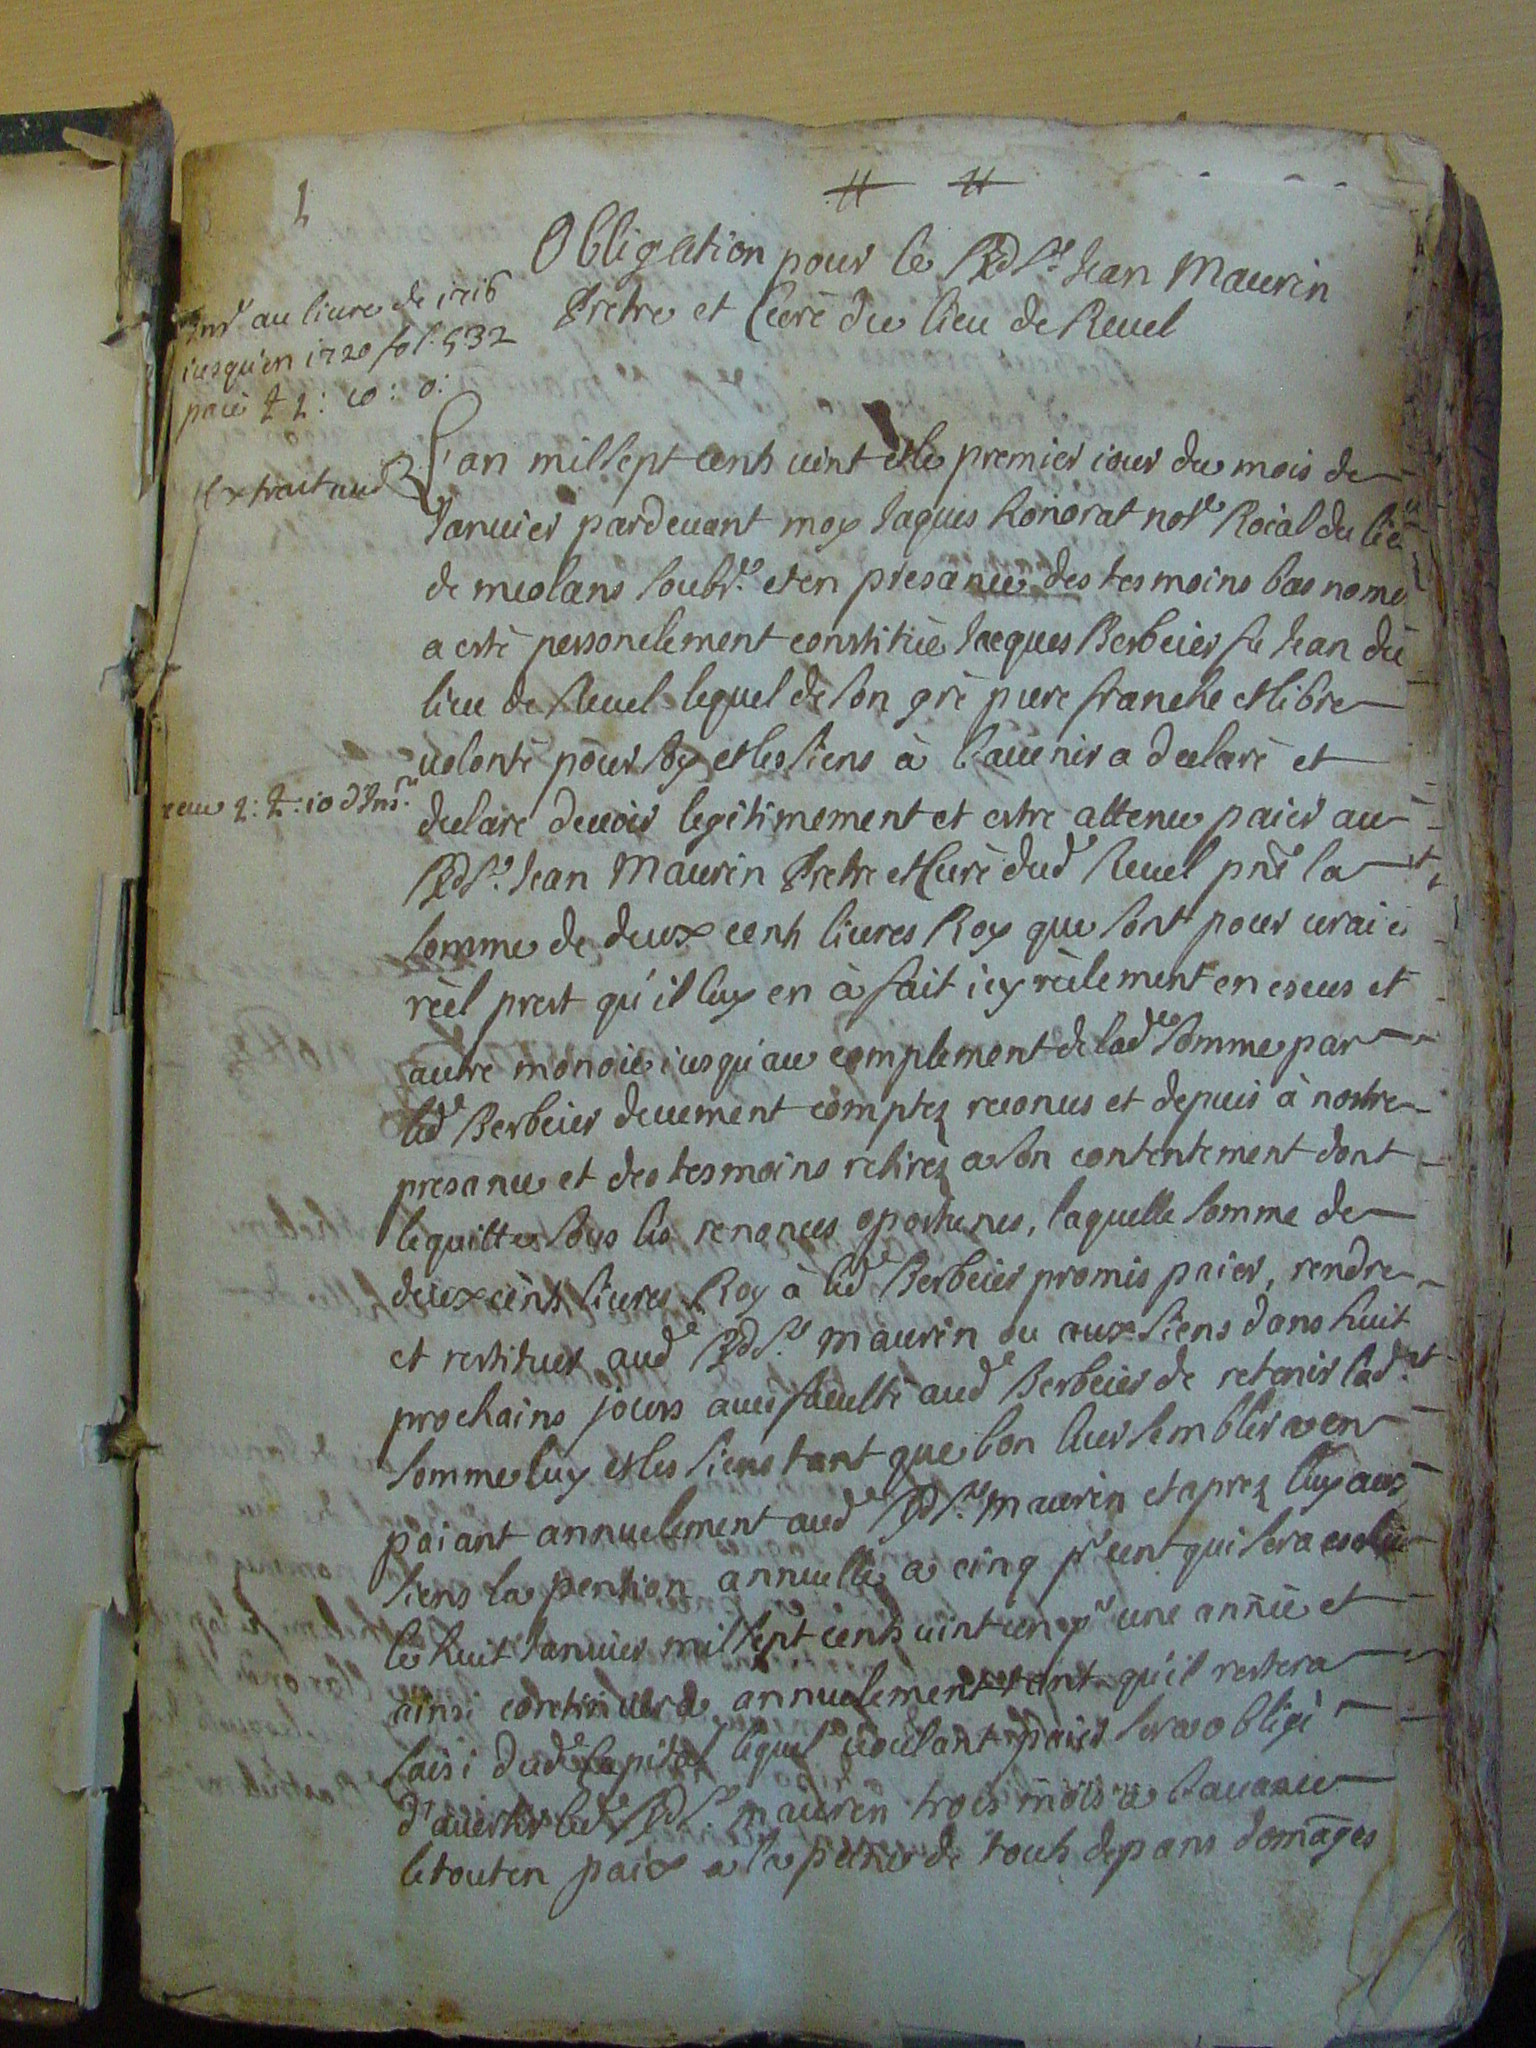 1
Obligation pour le Rd Sr Jean Maurin
Pretre et Curè du lieu de Reuel
Insr au liure de 1716
iusqu'en 1720 fol. 532
paié ₶ 1 : 10 : 0 :
Extrait aud
L'an mil sept cents uint et le premier iour du mois de
Januier pardeuant moy Jaques honorat notre Roial du lieu
de meolans soubsé et en presance des tesmoins bas només
a estè personelement constituè Jacques Berbeier fu Jean du
lieu de Reuel lequel de son grè pure franche et libre
uolontè pour soy et les siens à l'auenir a declarè et
declare deuoir legitimement et estre attenu paier au
Rd Sr Jean Maurin Pretre et Curè dud Reuel pnt la
somme de deux cents liures Roy que sont pour urai et
rèel prest qu'il luy en à fait icy rèelement en escus et
autre monoie iusqu'au complement de lade somme par
led Berbeier deuement comptez reconus et depuis à nostre
presance et des tesmoins retirez a son contentement dont
le quitte sous les renonces oportunes, laquelle somme de
deux cents liures Roy à led Berbeier promis paier, rendre
et restituer aud Rd Sr maurin ou aux siens dans huit
prochains jours auec facultè aud Berbeier de retenir lade
somme luy et les siens tant que bon leur semblera en
paiant annuelement aud Rd Sr maurin et aprez luy aux
siens la pention annuelle a cinq pr cent qui sera escheue
le huit Januier mil sept cents uint un pr une année et
ainsi continuera annuelement tant qu'il restera
saisi dud Capital lequel uoulant paier sera obligè
d'auertir led Rd Sr maurin trois mois a l'auance
le tout en paix a la peine de touts depans domages
receu 1 : ₶ : 10 d'Insn